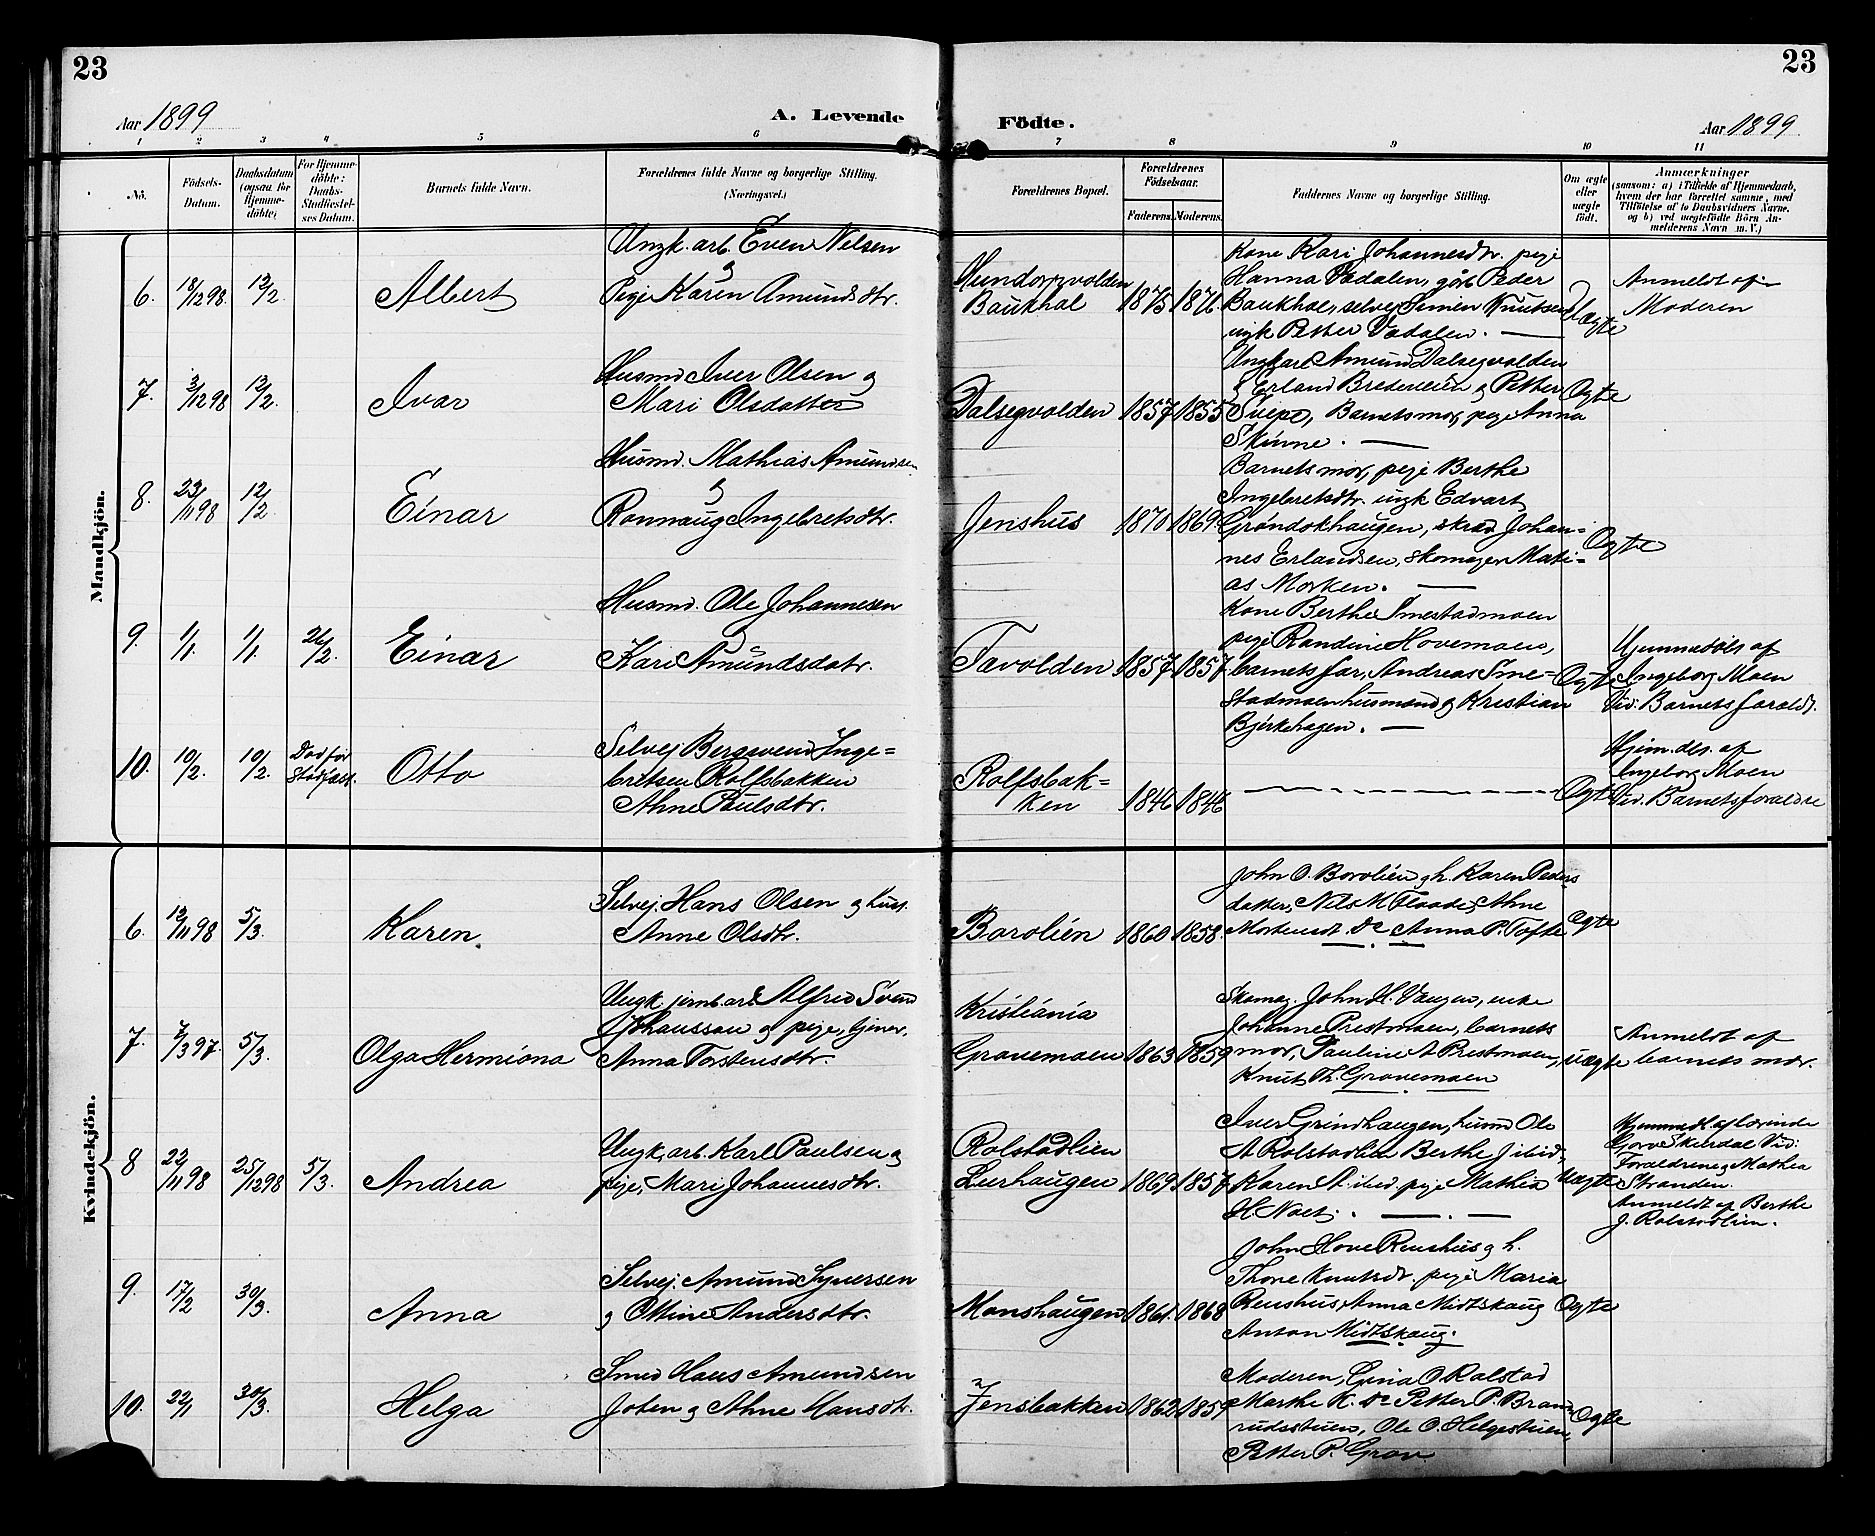 23
23
Aar 1899
A. Levende
Födte.
Aar 1899
1 2 3 4 5 6 7 8 9 10 11
No.
Födsels-
Datum.
Daabsdatum
(ogsaa for
Hjemme-
döbte)
For Hjemme-
döbte:
Daabs-
Stadfæstel-
ses Datum.
Barnets fulde Navn.
Forældrenes fulde Navne og borgerlige Stilling.
(Næringsvei.)
Forældrenes Bopæl.
Forældrenes
Födselsaar.
Faderens. Moderens.
Faddernes Navne og borgerlige Stilling.
Om ægte
eller
uægte
födt.
Anmærkninger
(saasom: a) i Tilfælde af Hjemmedaab,
hvem der har forrettet samme, med
Tilföielse af to Daabsvidners Navne.
og b) ved uægtefödte Börn An-
melderens Navn m. V.)
Mandkjön.
6. 18/12 98. 12/2. Albert
Ungk. arb. Even Nelsen
&
Pige Karen Amundsdtr.
Hundorpvolden
Baukhal
1875 1876.
Kone Kari Johannesdtr. pige
Hanna Vadalen, gårb Peder
Baukhal, selvej Simen Knutsen
ungk Petter Vadalen. —
Uægte
Anmeldt af
Moderen
7. 3/12 98 12/2. Ivar
Husmd Iver Olsen og
Mari Olsdatter
Dalsegvolden 1857 1855
Ungk arb Amund Dalsegvolden
& Erland Bredeveien og Petter
Sveipe, Barnets mor, pige Anna
Skinne. —
Ægte
8. 23/11 98 12/2 Einar
Husmd. Mathias Amundsen
&
Rønnaug Ingebretsdtr.
Jenshus 1870 1869.
Barnets mor, pige Berthe
Ingebretsdtr. ungk Edvart
Grøndokhaugen, skræd Johan=
nes Erlandsen, skomager Mati=
as Morken. —
Ægte
9. 1/1. 1/1. 26/2. Einar
Husmd. Ole Johannesen
&
Kari Amundsdatr.
Tavolden 1857 1857.
Kone Berthe Smestadmoen
pige Randine Hovemoen,
barnets far, Andreas Sme=
stadmoen husmand og Kristian
Bjerkehagen. —
Ægte
Hjemmedöbt af
Ingeborg Moen
Vid: Barnets forældr.
10. 10/2. 10/2. Død før
Stadfæst. Otto
Selvej Bergsvend Inge=
bretsen Rolfsbakken
Ahne Paulsdtr.
Rolfsbak=
ken
1846 1846
Ægte
Hjem. dø. af
Ingeborg Moen
Vid. Barnets forældre
Kvindekjön.
6. 13/11 98 5/3. Karen.
Selvej. Hans Olsen og hust.
Anne Olsdtr.
Borolien 1860 1858.
John O. Borolien og h. Karen Peders
datter, Nils M Floade, Ahne
Mortensdt. Do Anna P. Tofte
Ægte
7. 7/3 97. 5/3. Olga Hermiona
Ungk jernb. arb Alfred Svend
Johansson og pige, tjener
Anna Torstensdtr.
Kristiania
Gravemoen 1863 1859
Skomag. John H. Vangen, enke
Johanne Prestmoen, barnets
mor, Pauline A Prestmoen,
Knut Th. Gravemoen
uægte
Anmeldt af
barnets mor.
8 22/11 98 25/12 98 5/3. Andrea
Ungk. arb. Karl Paulsen og
pige, Mari Johannesdtr.
Rolstadlien
Lurhaugen 1869 1857
Iver Grindhaugen, husm Ole
A Rolstadlien Berthe J ibid,
Karen A. ibid. pige Mathia
H. Noet. — . —
Uægte
Hjemmed af Lovinde
Gorve Skurdal Vid:
Forældrene og Mathia
Stranden.
Anmeldt af Berthe
J. Rolstadlien.
9. 17/2 30/3. Anna
Selvej. Amund Syversen
og Ottine Andersdtr.
Monshaugen 1861. 1868
John Hove Renshus og h.
Thone Knutsdt. pige Maria
Renshus, Anna Midtskaug
Anton Midtskaug.
Ægte
10. 22/1 30/3. Helga
Smed Hans Amundsen
Joten og Ahne Hansdtr.
Jensbakken 1862 1859
Moderen, Gina O. Rolstad
Marthe K. Do Petter P. Bram=
rudsstuen, Ole O. Helgestuen,
Petter P. Grav
Ægte